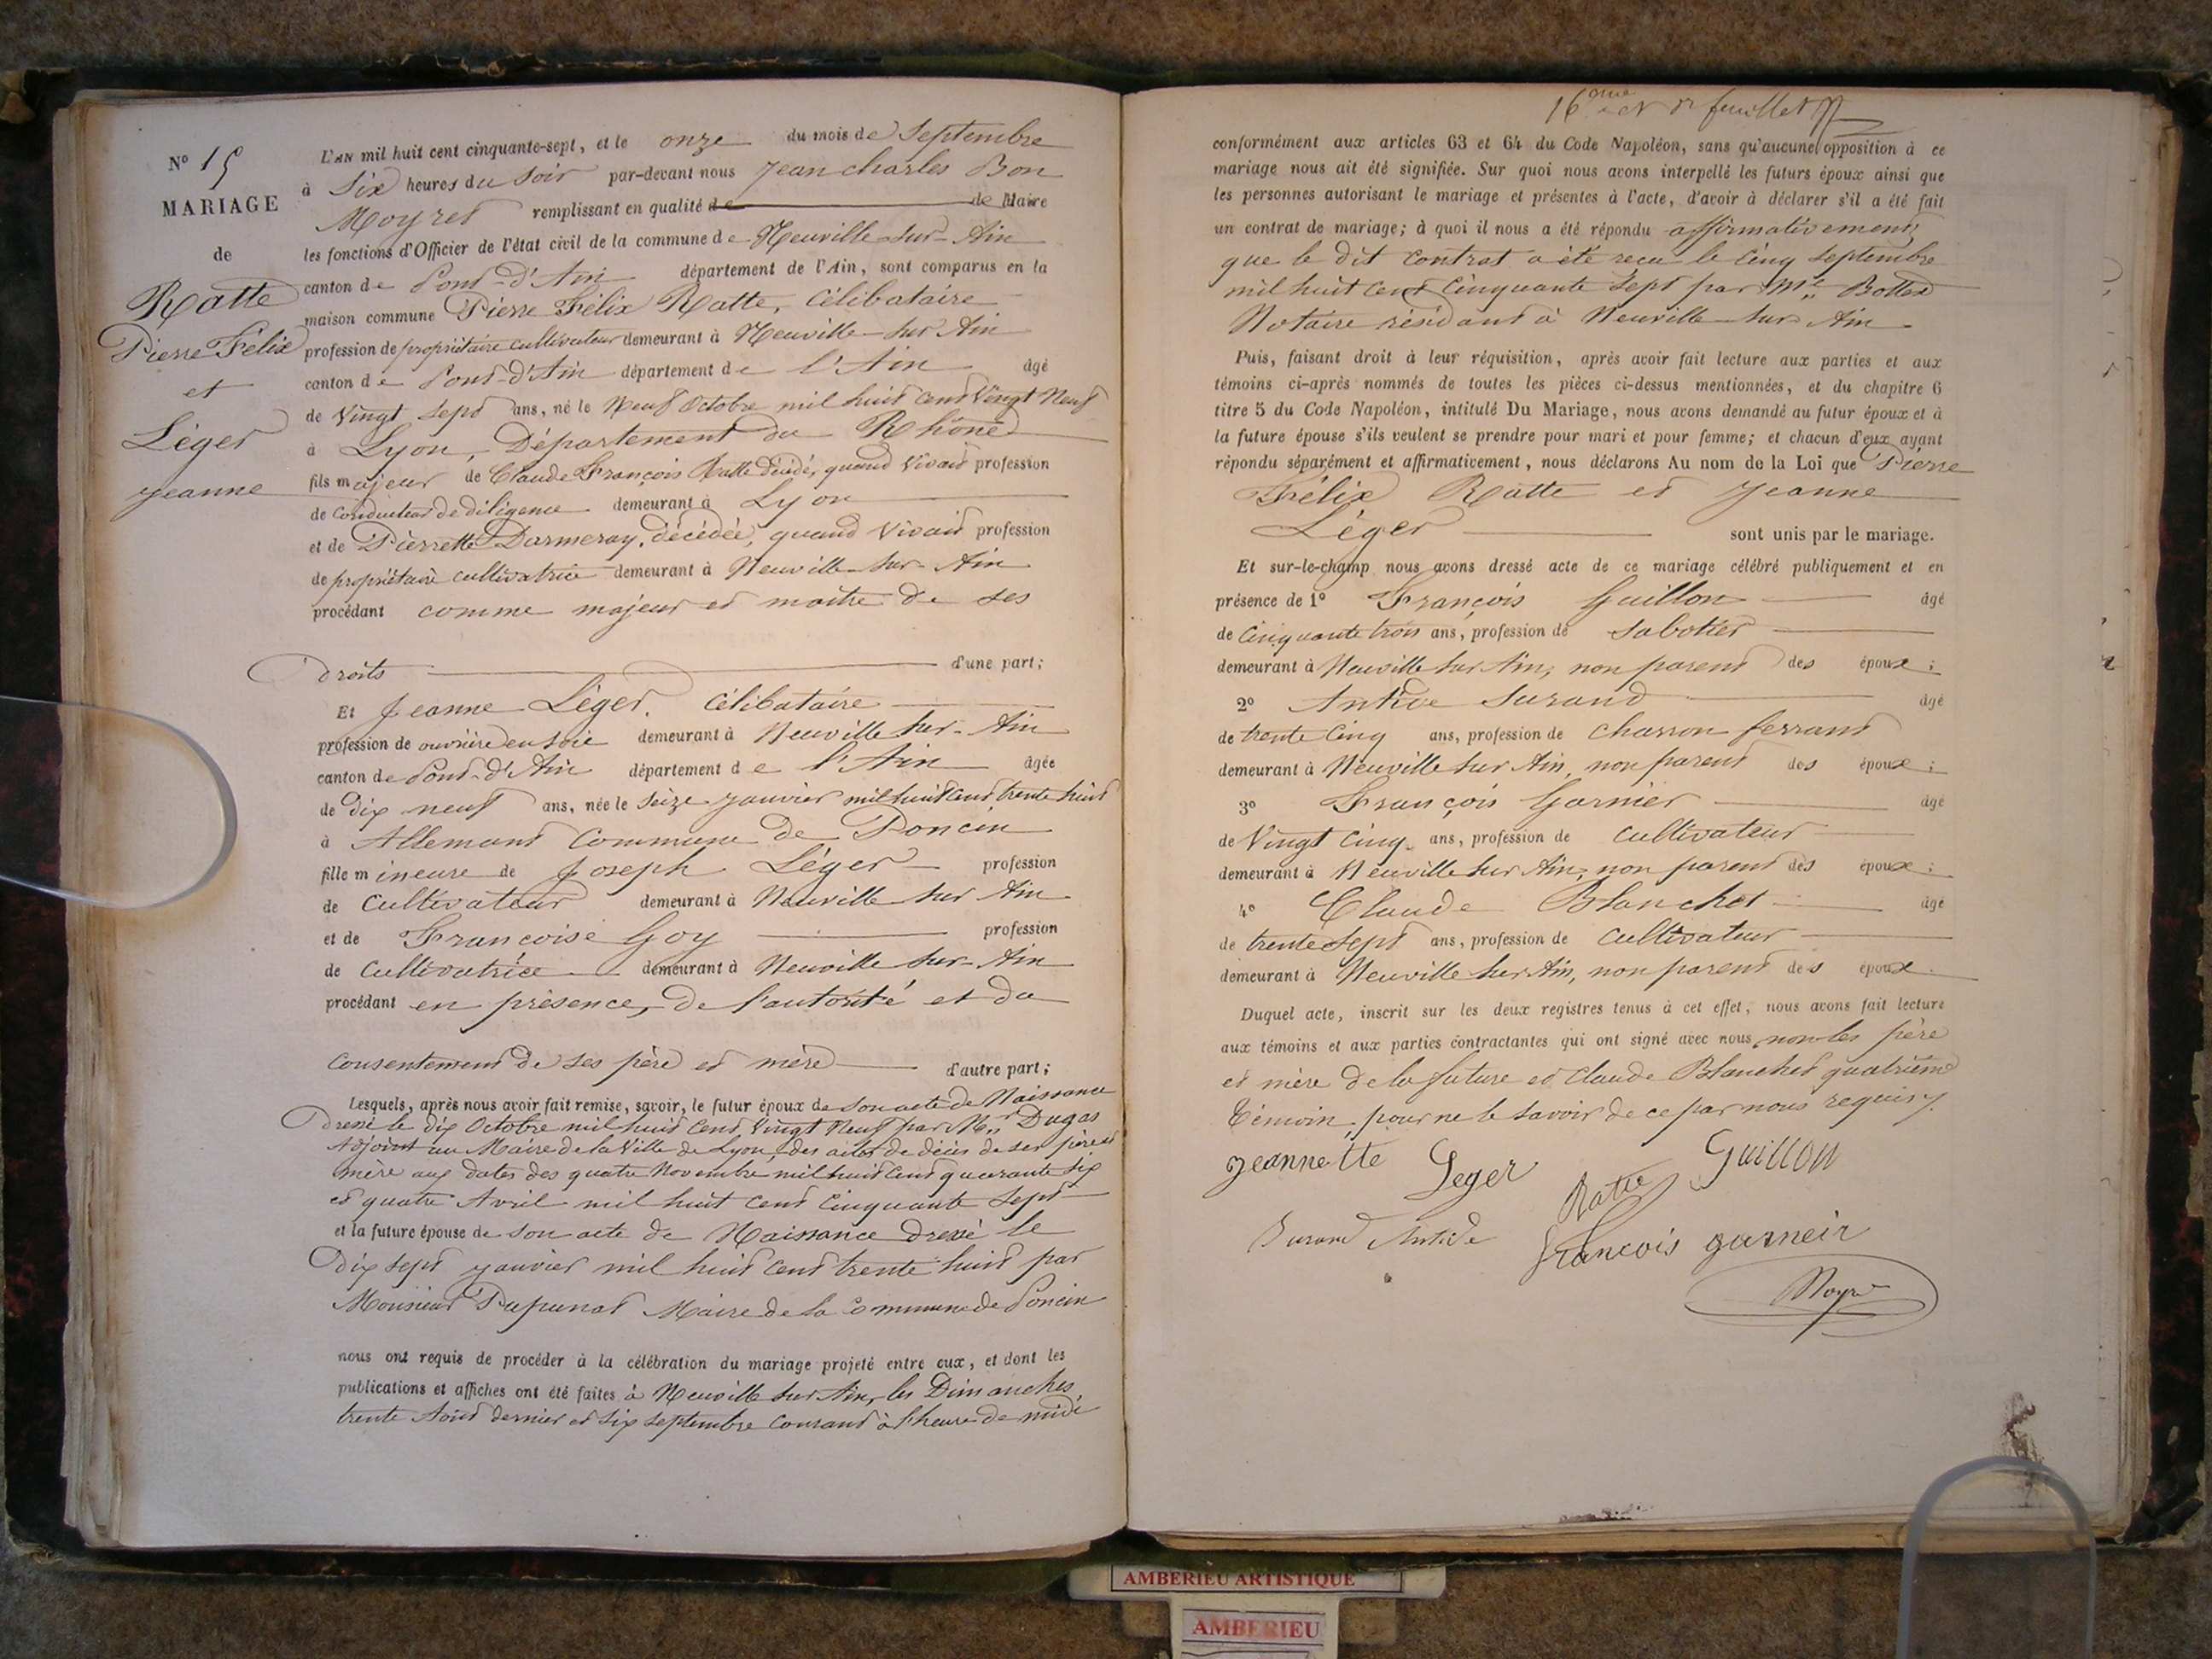 N° 15
MARIAGE
de
Ratte
Pierre Félix
et
Léger
Jeanne
L'AN mil huit cent cinquante-sept, et le onze du mois de Septembre
à Six heures du Soir par-devant nous Jean Charles Bon
Moyret remplissant en qualité de de Maire
les fonctions d'Officier de l'état civil de la commune de Neuville-sur-Ain
canton de Pont-d'Ain département de l'Ain, sont comparus en la
maison commune Pierre Félix Ratte, Célibataire
profession de propriétaire cultivateur demeurant à Neuville-sur Ain
canton de Pont-d'Ain département de l'Ain âgé
de Vingt Sept ans, né le Neuf Octobre mil huit Cent Vingt Neuf
à Lyon, Département du Rhône
fils majeur de Claude François Ratte décédé, quand Vivait profession
de Conducteur de diligence demeurant à Lyon
et de Pierrette Darmeray, décédée, quand Vivait profession
de propriétaire cultivatrice demeurant à Neuville-Sur-Ain
procédant comme majeur et maître de ses
droits d'une part;
Et Jeanne Léger, Célibataire
profession de ouvrière en soie demeurant à Neuville Sur-Ain
canton de Pont-d'Ain département de l'Ain âgée
de Dix neuf ans, née le Seize Janvier mil huit Cent trente huit
à Allement Commune de Poncin
fille mineure de Joseph Léger profession
de Cultivateur demeurant à Neuville sur Ain
et de Françoise Goy profession
de Cultivatrice demeurant à Neuville Sur-Ain
procédant en présence, de l'autorité et du
Consentement de ses père et mère d'autre part;
Lesquels, après nous avoir fait remise, savoir, le futur époux de son acte de Naissance
Dressé le dix Octobre mil huit Cent Vingt Neuf par Mr Dugas
Adjoint au Maire de la Ville de Lyon, des actes de décès de ses père et
mère aux dates des quatre Novembre mil huit Cent quarante Six
et quatre Avril mil huit Cent Cinquante Sept
et la future épouse de son acte de Naissance dressé le
Dix Sept Janvier mil huit Cent trente huit par
Monsieur Pupunat Maire de la Commune de Poncin
nous ont requis de procéder à la célébration du mariage projeté entre eux, et dont les
publications et affiches ont été faites à Neuville sur Ain, les Dimanches
trente Août dernier et Six Septembre Courant à l'heure de midi
16eme et dr feuillet
conformément aux articles 63 et 64 du Code Napoléon, sans qu'aucune opposition à ce
mariage nous ait été signifiée. Sur quoi nous avons interpellé les futurs époux ainsi que
les personnes autorisant le mariage et présentes à l'acte, d'avoir à déclarer s'il a été fait
un contrat de mariage; à quoi il nous a été répondu affirmativement,
que le dit Contrat a été reçu le Cinq Septembre
mil huit Cent Cinquante Sept par Me Bottex
Notaire résidant à Neuville Sur Ain
Puis, faisant droit à leur réquisition, après avoir fait lecture aux parties et aux
témoins ci-après nommés de toutes les pièces ci-dessus mentionnées, et du chapitre 6
titre 5 du Code Napoléon, intitulé Du Mariage, nous avons demandé au futur époux et à
la future épouse s'ils veulent se prendre pour mari et pour femme; et chacun d'eux ayant
répondu séparément et affirmativement, nous déclarons Au nom de la Loi que Pierre
Félix Ratte et Jeanne
Léger sont unis par le mariage.
Et sur-le-champ nous avons dressé acte de ce mariage célébré publiquement et en
présence de 1° François Guillon âgé
de Cinquante trois ans, profession de Sabotier
demeurant à Neuville Sur Ain, non parent des époux;
2° Antide Durand âgé
de trente Cinq ans, profession de Charron ferrant
demeurant à Neuville Sur Ain, non parent des époux;
3° François Garnier âgé
de Vingt Cinq ans, profession de Cultivateur
demeurant à Neuville Sur Ain, non parent des époux;
4° Claude Blanchet âgé
de trente Sept ans, profession de Cultivateur
demeurant à Neuville Sur Ain, non parent des époux.
Duquel acte, inscrit sur les deux registres tenus à cet effet, nous avons fait lecture
aux témoins et aux parties contractantes qui ont signé avec nous, non les père
et mère de la future et Claude Blanchet quatrième
témoin, pour ne le savoir de ce par nous requis.
Jeannette Leger Ratte Guillon
Durand Antide François garneir
Moyret
AMBERIEU ARTISTIQUE
AMBERIEU